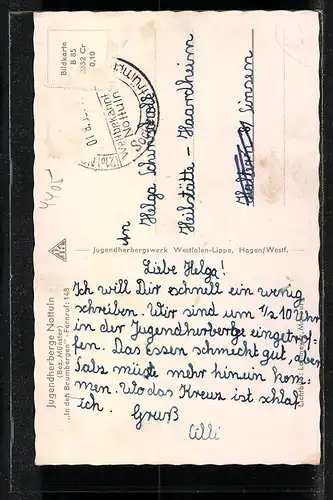 Bildkarte
B 85
3552 Cr
0,10
Weltbekannt
Nottuln
4405
Jugendherberge Nottuln
(Bez. Münster)
„In den Brumbergen“ · Fernruf: 148
an Helga
Heilstätte – Haardheim
Sinsen
Jugendherbergswerk Westfalen-Lippe, Hagen/Westf.
Liebe Helga!
Ich will Dir schnell ein wenig
schreiben. Wir sind um 1/2 10 Uhr
in der Jugendherberge eingetrof-
fen. Das Essen schmeckt gut, aber
Salz müsste mehr hinein kom-
men. Wo das Kreuz ist schlaf
ich.
Gruß
Cilli
Lichtbild: